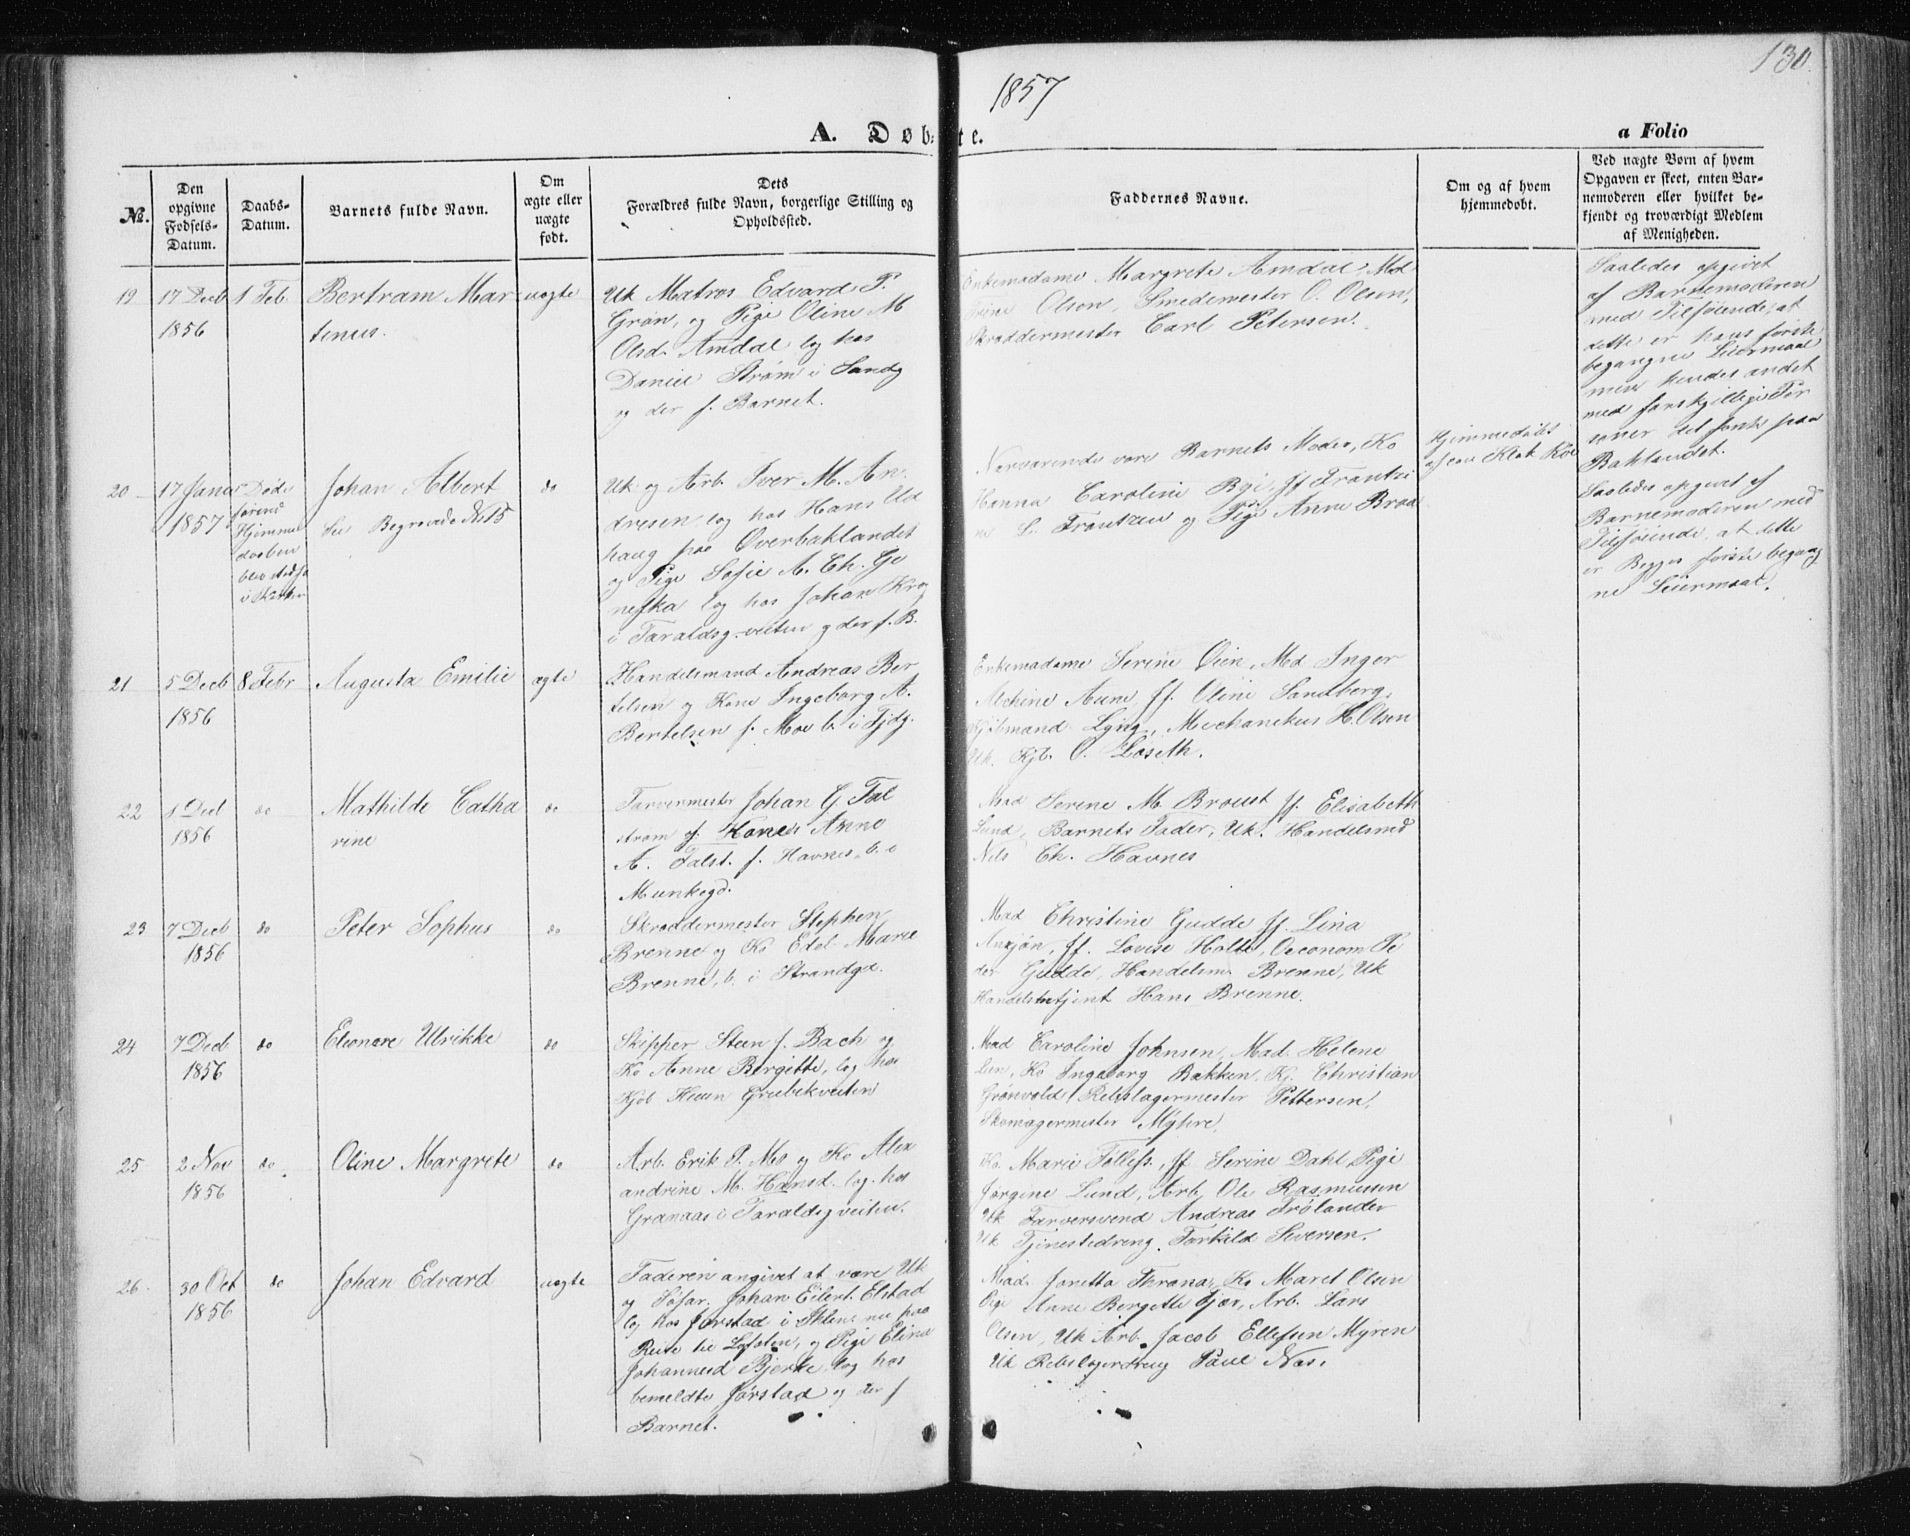 130.
1857
A. Døbte.
a Folio
No.
Den opgivne Fødsels-Datum.
Daabs-Datum.
Barnets fulde Navn.
Om ægte eller uægte født.
Dets Forældres fulde Navn, borgerlige Stilling og Opholdssted.
Faddernes Navne.
Om og af hvem hjemmedøbt.
Ved uægte Børn af hvem Opgaven er skeet, enten Barnemoderen eller hvilket bekjendt og troværdigt Medlem af Menigheden.
19
17 Decb
1856
1 Feb
Bertram Mar-
tenius.
uægte
Uk Matros Edvard P.
Grøn, og Pige Oline M
Olsd. Amdal log hos
Daniel Strøm i Sandg
og der f. Barnet.
Enkemadame Margrete Amdal, Md
Trine Olsen, Smedemester O. Olsen,
Skræddermester Carl Petersen.
Saaledes opgivet
af Barnemoderen
med Tilføiende, at
dette er hans første
begangne Leiermaal
men hendes andet
med forskjellige Per
soner det første paa
Baklandet.
20
17 Janu
1857
Døde
førend
Hjemme
daaben
blev stadf
i Kirken
Johan Albert
See Begravede No 15
do
Uk og Arb. Iver M. An
dresen, log hos Hans Ud
haug paa Overbaklandet
og Pige Sofie A. Ch. Ge
nefka log hos Johan Krog
i Taraldsg.veiten og der f. B.
Nærværende vare Barnets Moder, Ko
Hanna Caroline Bye, Jf Frantzi
ne L. Frantzen og Pige Anne Braa
Hjemmedøbt
af res Klok Roe
Saaledes opgivet af
Barnemoderen med
Tilføiende, at dette
er Begges første begang
ne Leiermaal.
21
5 Decb
1856
8 Febr
Augusta Emilie
ægte
Handelsmand Andreas Ber
telsen og Kone Ingeborg A.
Bertelsen f. Moe b. i Fjdg.
Enkemadame Serine Øien, Md Inger
Alchine Aune Jf. Oline Sandberg,
Kjøbmand Lyng, Mechanikus H. Olsen
Uk. Kjb. O. Løseth.
22
1 Decb
1856
do
Mathilde Catha
rine
do
Farvermester Johan G. Fal
strøm og Kone Anne
A. Falst. f. Havnes, b. i
Munkegd.
Mad Serine M. Broust Jf. Elisabeth
Lund, Barnets Fader, Uk. Handelsmd
Nils Ch. Havnes
23
7 Decb
1856
do
Peter Sophus
do
Skræddermester Stephen
Brenne og Ko Edel Marie
Brenne, b. i Strandgd.
Mad Christine Gudde Jf. Lina
Anzjøn, Jf. Lovise Holte, Oeconom Pe
der Gudde, Handelsm. Brenne, Uk
Handelsbetjent Hans Brenne.
24
7 Decb
1856
do
Eleonore Ulrikke
do
Skipper Steen J. Bach og
Ko Anne Birgitte, log hos
Kjøb Huun Grubekveiten
Mad Caroline Johnsen, Mad. Helene
Lien, Ko Ingeborg Bakken, Kj. Christian
Grønvold, Rebslagermester Pettersen,
Skomagermester Myhre.
25
2 Nov
1856
do
Oline Margrete
do
Arb. Erik P. Moe og Ko Alex
andrine M. Hansd. log. hos
Granaas i Taraldsgveiten.
Ko. Marie Tølless., Jf Serine Dahl, Pige
Jørgine Lund, Arb. Ole Rasmussen
Uk Farversvend Andreas Frølander
Uk Tjenestedreng Torkild Siversen.
26.
30 Oct
1856
do
Johan Edvard
uægte
Faderen angivet at være Uk
og Søfar. Johan Eilert Elstad
log hos Jørstad i Ihlen, nu paa
Reise til Lofoten, og Pige Elina
Johannesd Bjerke log hos
bemeldte Jørstad og der f
Barnet.
Mad. Joretta Thrana, Ko Maret Olsen
Pige Anne Bergitte Fjær, Arb. Lars
Olsen, Uk Arb. Jacob Ellefsen Myren
Uk Rebslagerdreng Paul Næs.